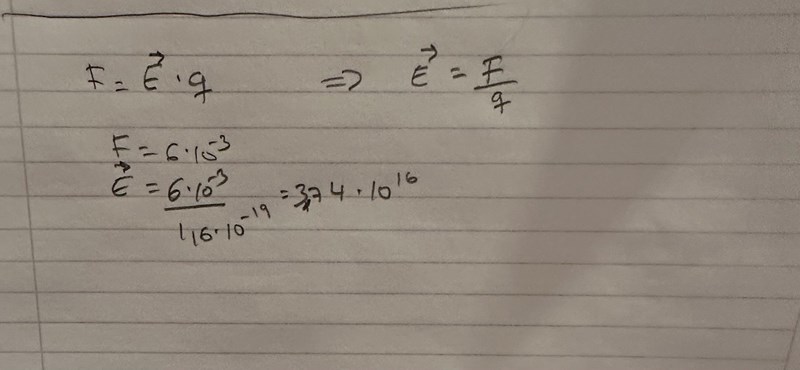 F = E⃗ · q ⇒ E⃗ = F/q
F = 6·10⁻³
E⃗ = 6·10⁻³/1,6·10⁻¹⁹ = 3,74·10¹⁶